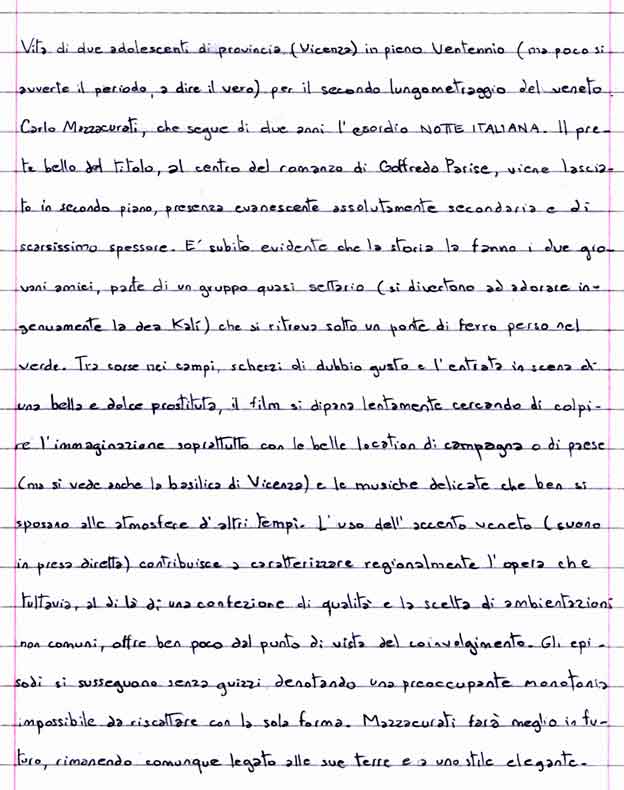 Vita di due adolescenti di provincia (Vicenza) in pieno Ventennio (ma poco si
avverte il periodo, a dire il vero) per il secondo lungometraggio del veneto
Carlo Mazzacurati, che segue di due anni l'esordio NOTTE ITALIANA. Il pre-
te bello del titolo, al centro del romanzo di Goffredo Parise, viene lascia-
to in secondo piano, presenza evanescente assolutamente secondaria e di
scarsissimo spessore. E' subito evidente che la storia la fanno i due gio-
vani amici, parte di un gruppo quasi settario (si divertono ad adorare in-
genuamente la dea Kalì) che si ritrova sotto un ponte di ferro perso nel
verde. Tra corse nei campi, scherzi di dubbio gusto e l'entrata in scena di
una bella e dolce prostituta, il film si dipana lentamente cercando di colpi-
re l'immaginazione soprattutto con le belle location di campagna o di paese
(ma si vede anche la basilica di Vicenza) e le musiche delicate che ben si
sposano alle atmosfere d'altri tempi. L'uso dell'accento veneto (suono
in presa diretta) contribuisce a caratterizzare regionalmente l'opera che
tuttavia, al di là di una confezione di qualità e la scelta di ambientazioni
non comuni, offre ben poco dal punto di vista del coinvolgimento. Gli epi-
sodi si susseguono senza guizzi denotando una preoccupante monotonia
impossibile da riscattare con la sola forma. Mazzacurati farà meglio in fu-
turo, rimanendo comunque legato alle sue terre e a uno stile elegante.